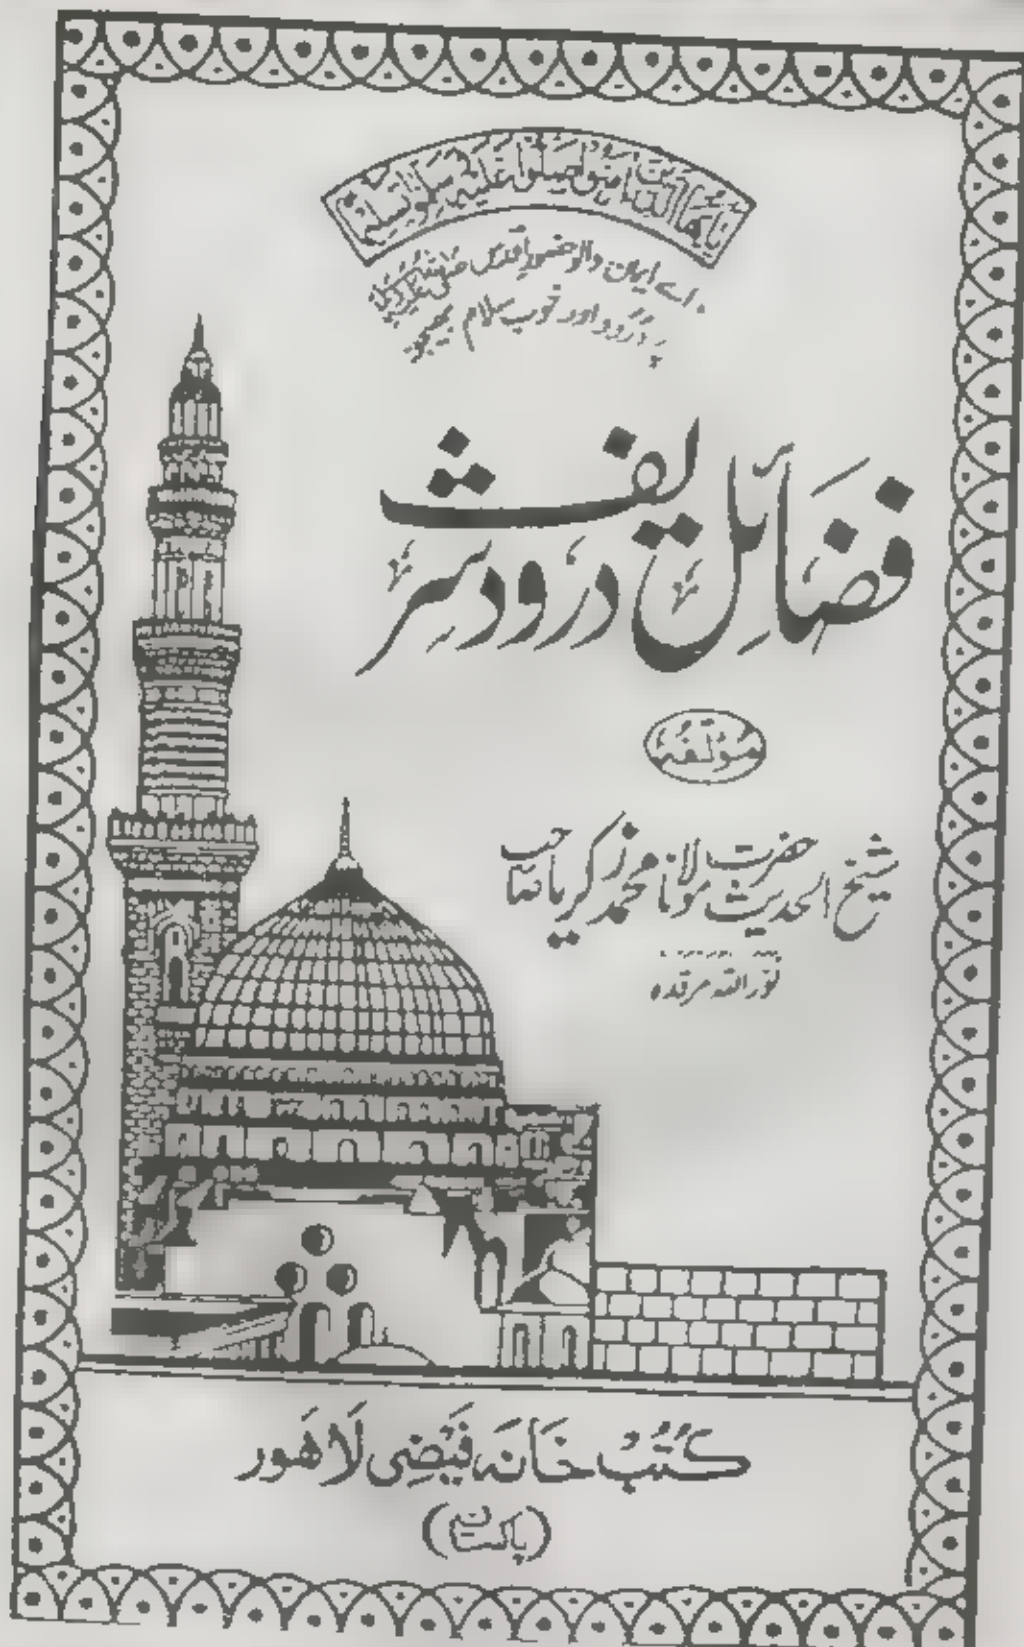 يَا أَيُّهَا الَّذِينَ آمَنُوا صَلُّوا عَلَيْهِ وَسَلِّمُوا تَسْلِيمًا
اے ایمان والو حضور اقدس صلی اللہ علیہ وسلم
پر درود اور خوب سلام بھیجو
فضائل درود شریف
مؤلفہ
شیخ الحدیث حضرت مولانا محمد زکریا صاحب
نور اللہ مرقدہ
کتب خانہ فیضی لاہور
(پاکستان)